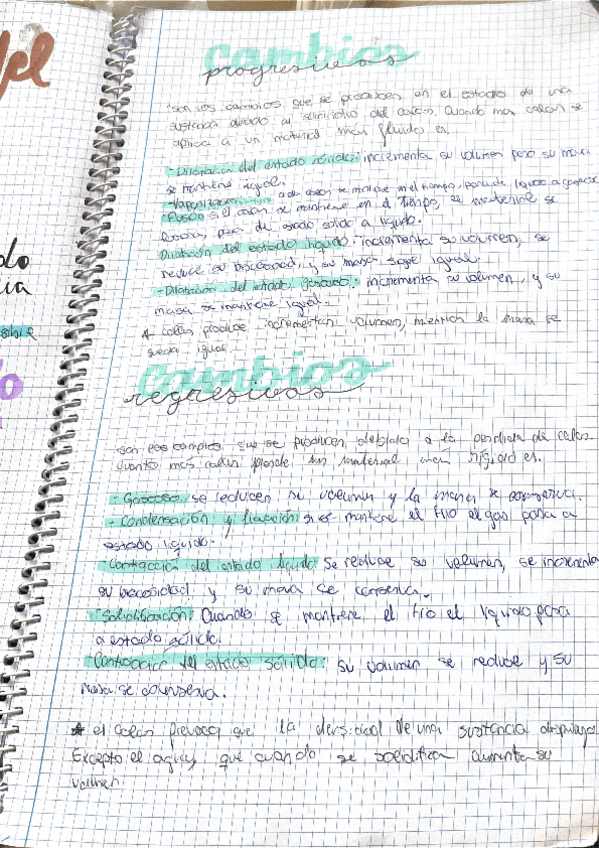 Cambios
progresivos
son los cambios que se producen en el estado de una
sustancia debido al suministro del calor. Cuando mas calor se
aplica a un material mas fluido es.
-Dilatacion del estado sólido: incrementa su volumen pero su masa
se mantiene igual.
-Vaporizacion: calor se mantiene en el tiempo, pasa de liquido a gaseoso
-Fusión si el calor se mantiene en el tiempo, el material se
fusiona, pasa de estado solido a liquido.
Dilatación del estado liquido: incrementa su volumen, se
reduce su viscosidad, y su masa sigue igual.
-Dilatación del estado gaseoso: incrementa su volumen, y su
masa se mantiene igual.
* calor produce incrementan volumen, mientras la masa se
queda igual.
Cambios
regresivos
son los cambios que se producen debido a la perdida de calor
cuanto mas calor pierde un material más rígido es.
-Gaseoso: se reducen su volumen y la masa se conserva.
-Condensación y si se mantiene el frío el gas pasa a
estado liquido.
-Contracción del estado liquido: Se reduce su volumen, se incrementa
su viscosidad y su masa se conserva.
-Solidificación: Cuando se mantiene el frío el liquido pasa
a estado sólido.
-Contracción del estado sólido: su volumen se reduce y su
masa se conserva.
* el calor provoca que la densidad de una sustancia disminuya.
Excepto el agua, que cuando se solidifica aumenta su
volumen